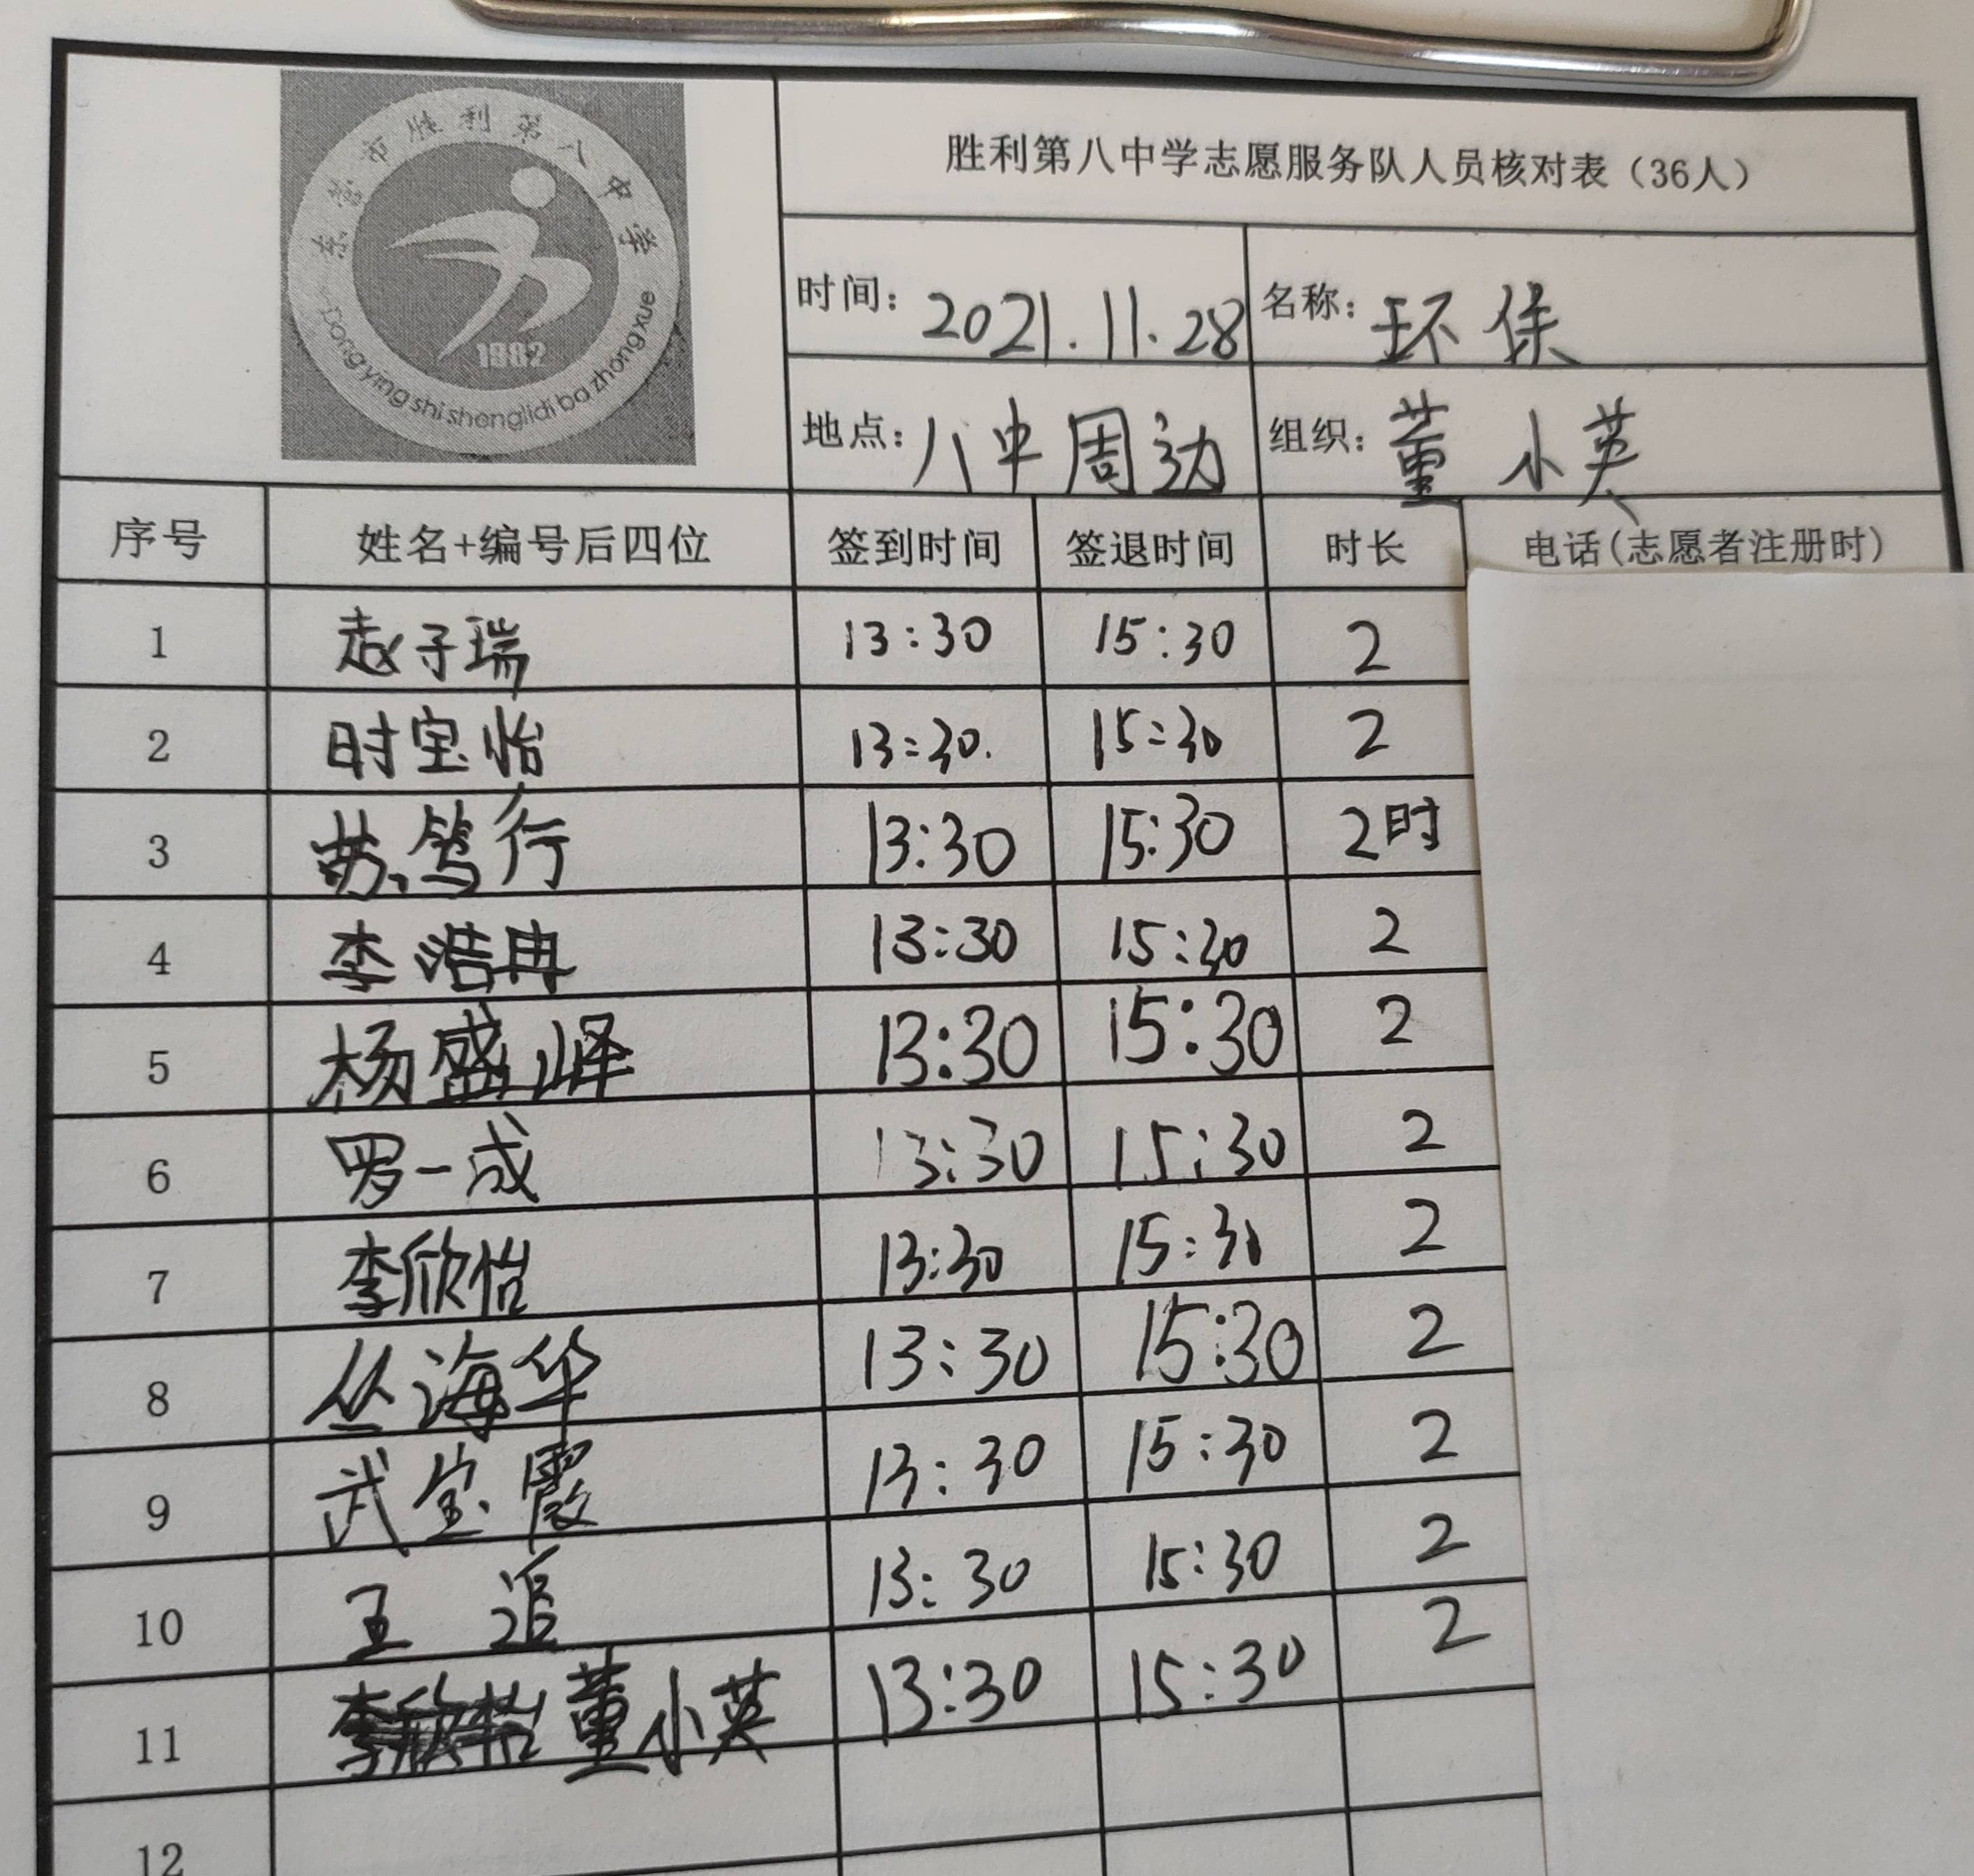 东营市胜利第八中学
1982
Dongyingshishenglidibazhongxue
胜利第八中学志愿服务队人员核对表（36人）
时间：2021.11.28 名称：环保
地点：八中周边 组织：董小英
序号 姓名+编号后四位 签到时间 签退时间 时长 电话(志愿者注册时)
1 赵子瑞 13:30 15:30 2
2 时宝怡 13:30. 15:30 2
3 苏笃行 13:30 15:30 2时
4 李浩冉 13:30 15:30 2
5 杨盛峄 13:30 15:30 2
6 罗一成 13:30 15:30 2
7 李欣怡 13:30 15:30 2
8 丛海华 13:30 15:30 2
9 武宝霞 13:30 15:30 2
10 王追 13:30 15:30 2
11 董小英 13:30 15:30 2
12